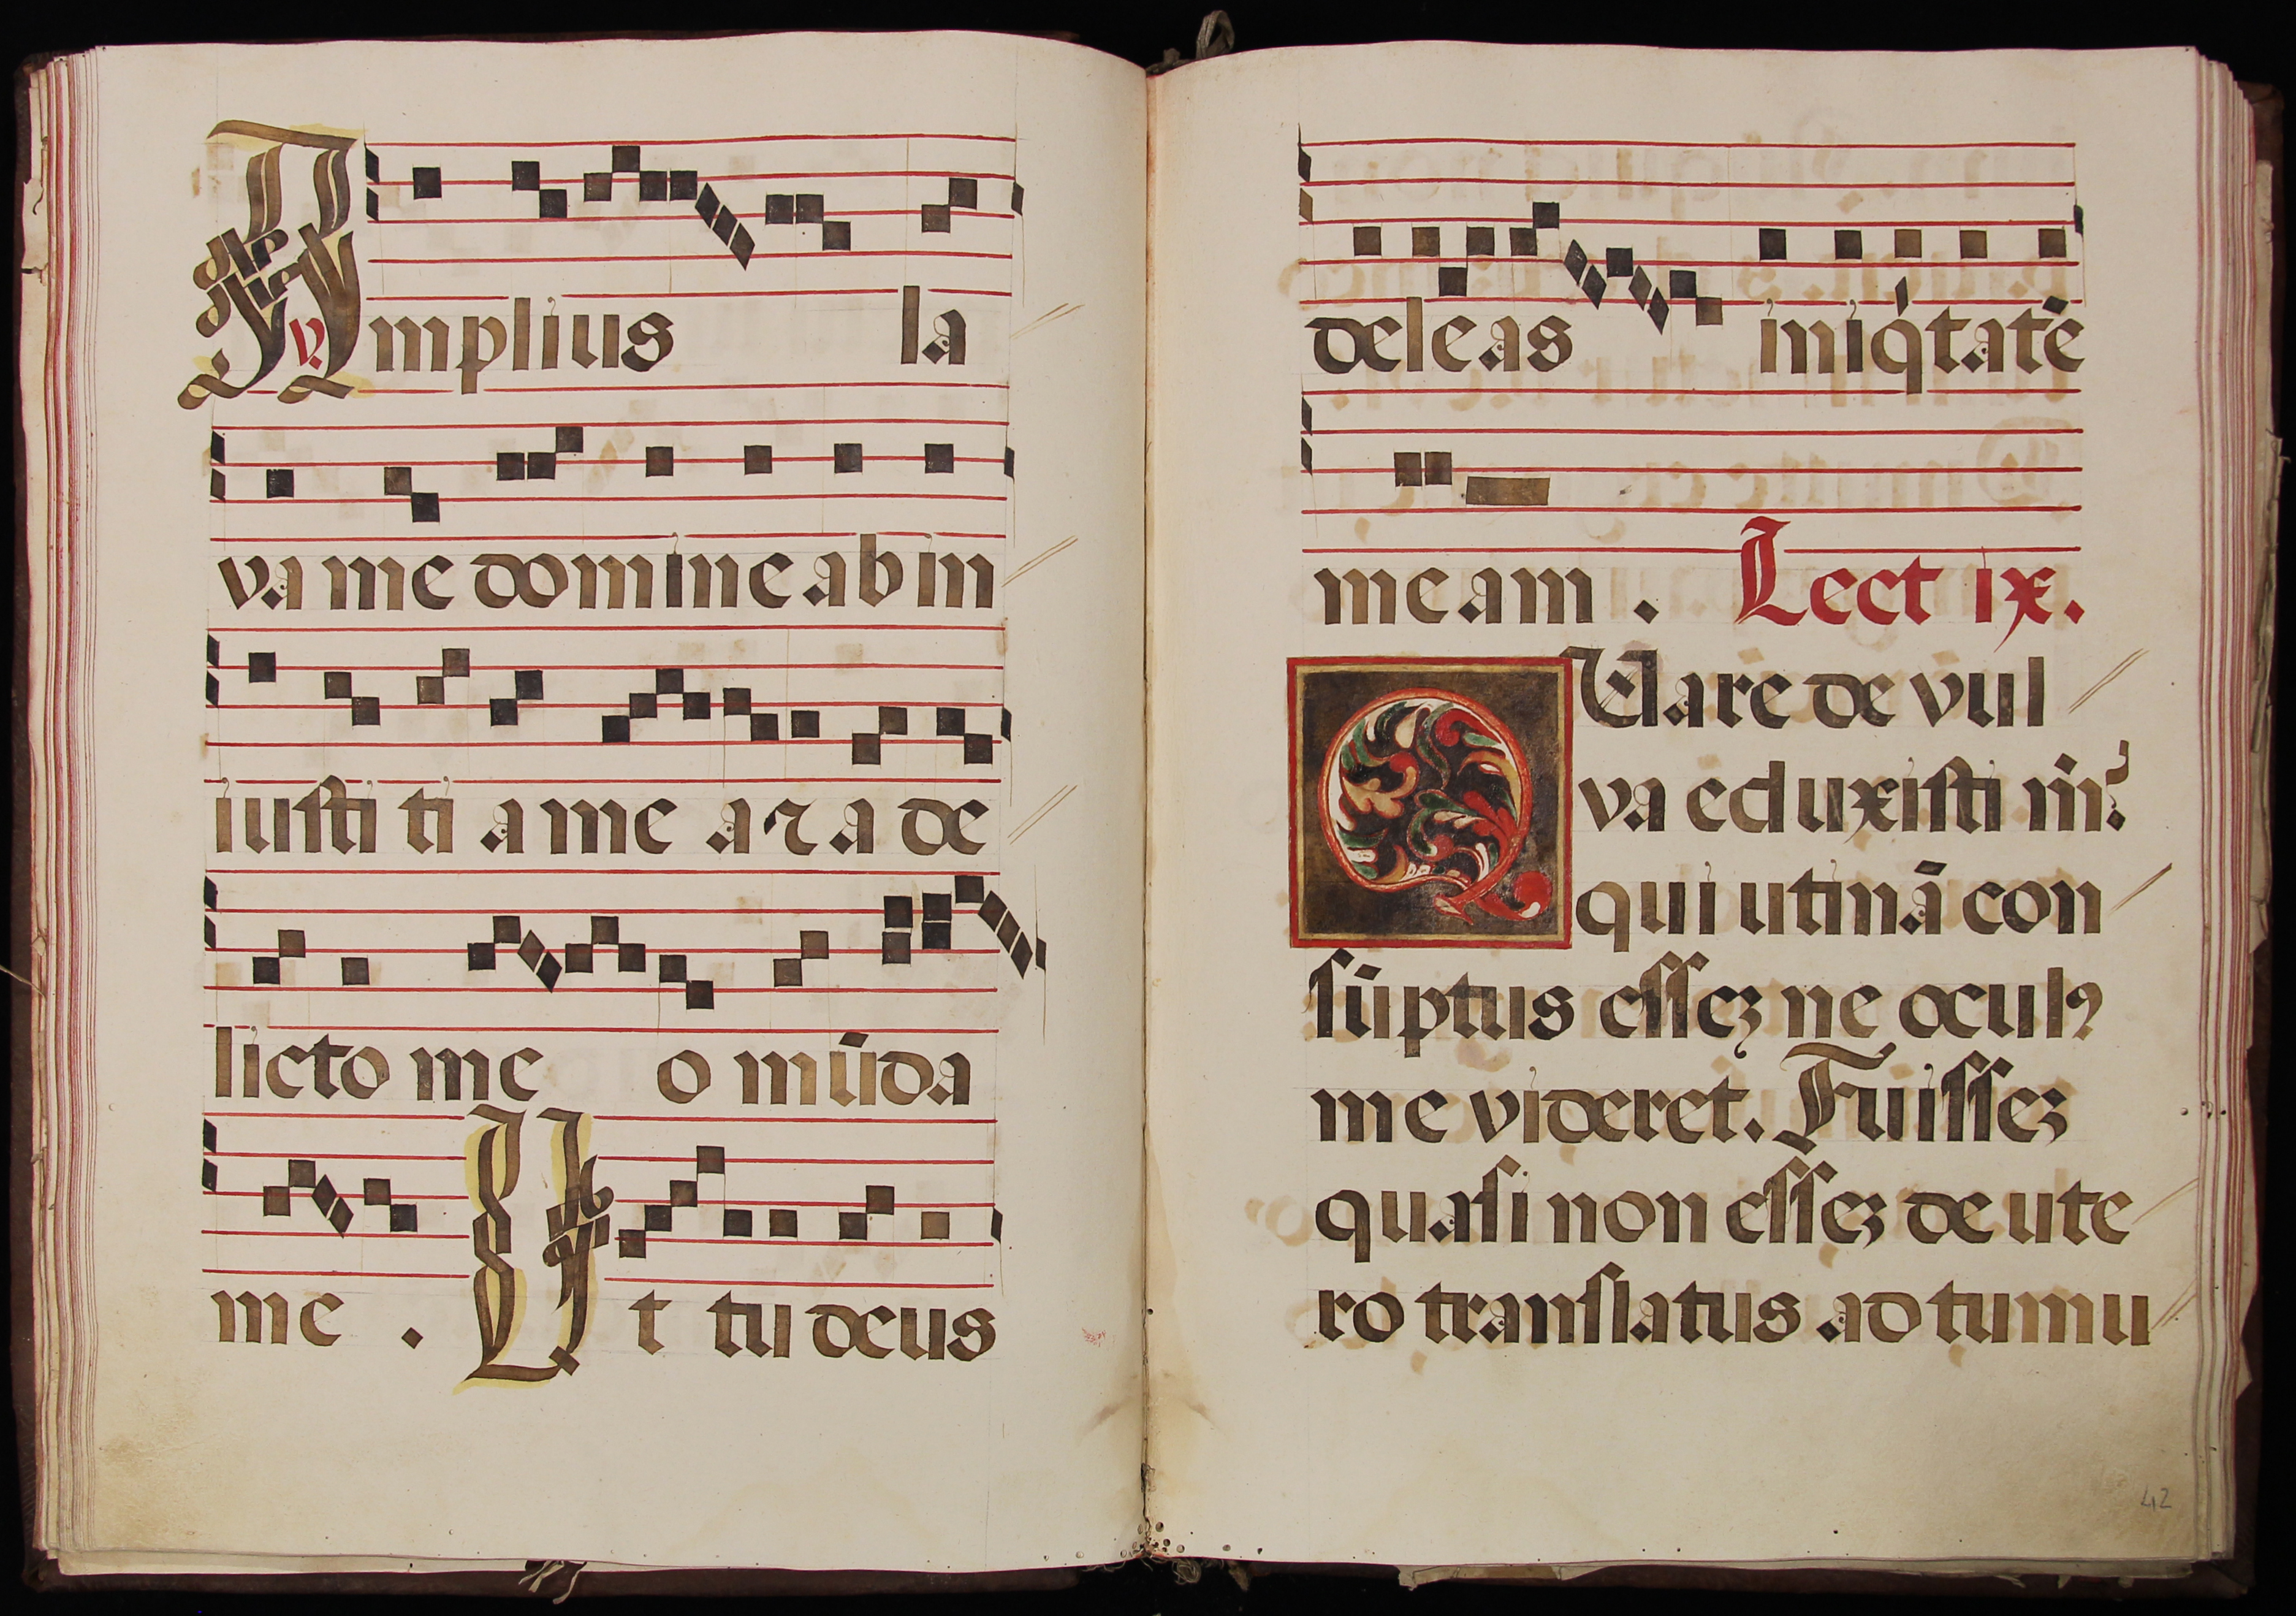 v. Amplius la
va me domine ab in
iusti ti a me a ꝛ a de
licto me o mūda
me . Ut tu deus
deleas iniq́tatē
meam . Lect ix.
QUare de vul
va eduxisti m̄?
qui utinā con
sūptus esseʒ ne ocul9
me videret. Fuisseʒ
quasi non esseʒ de ute
ro translatus ad tumu
42